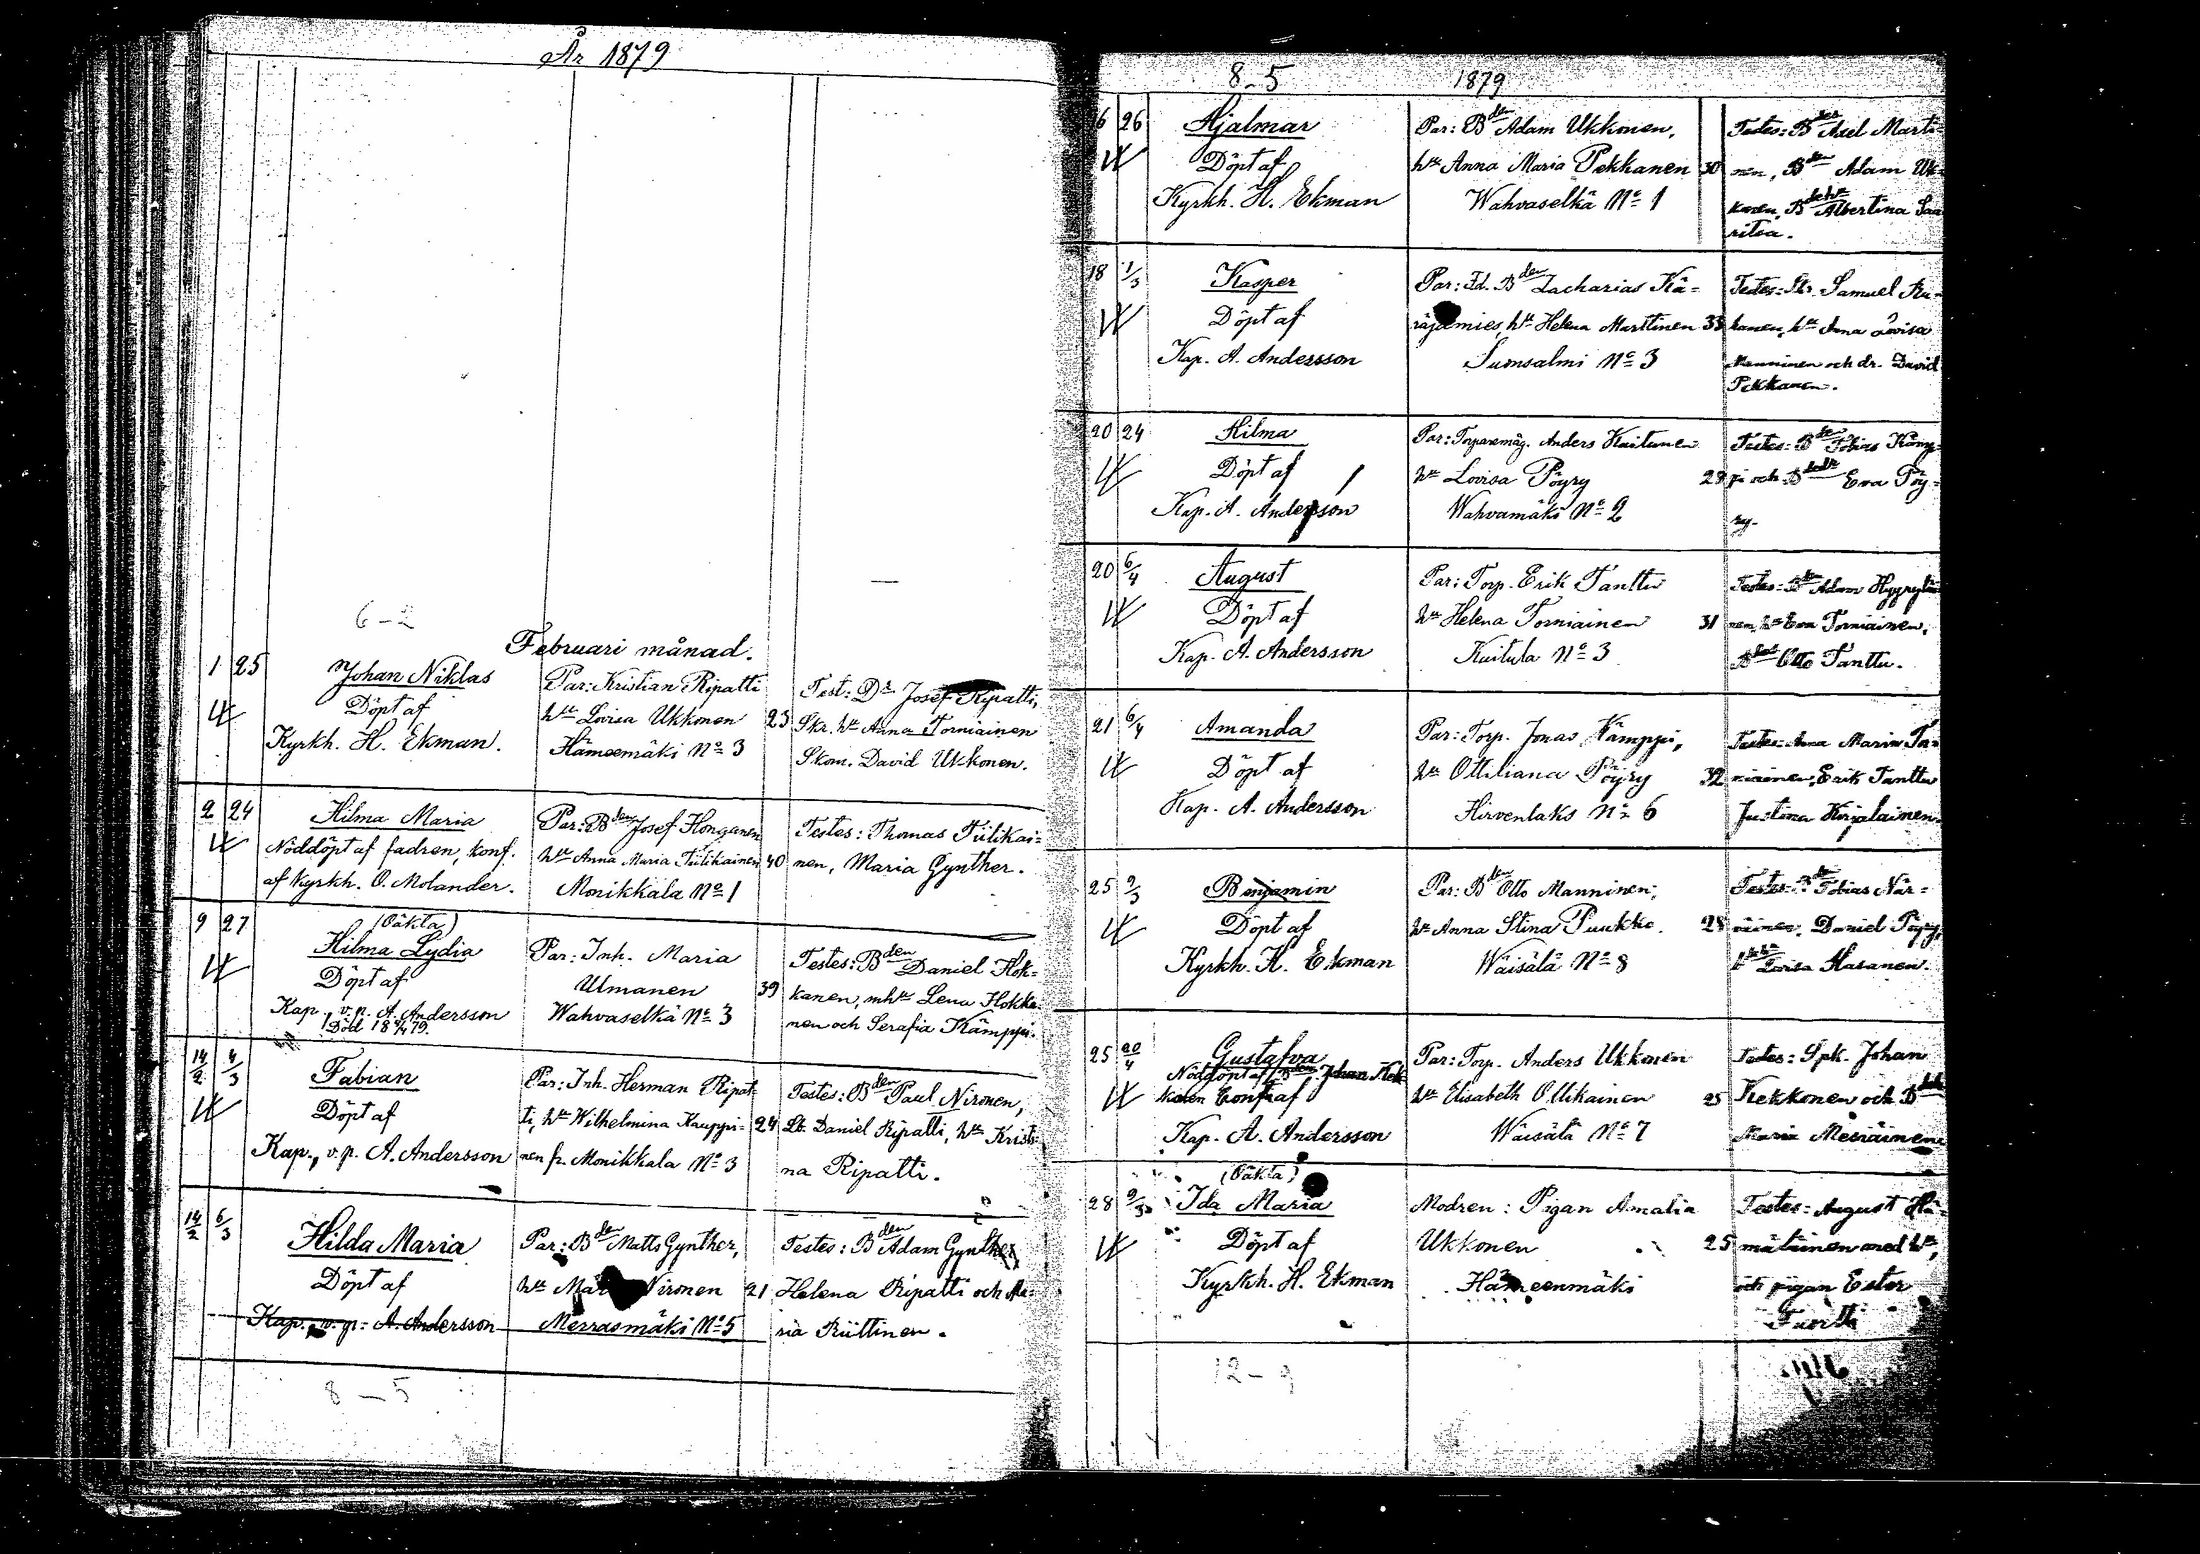 År 1879
6-2
Februari månad.
1 25 Johan Niklas
Döpt af
Kyrkh. H. Ekman.
Par: Kristian Ripatti
hu Lovisa Ukkonen 23
Hämeemäki No 3
Test: Dr Josef Ripatti,
Skr. hu Anna Torniainen
Skom. David Ukkonen.
2 24 Hilma Maria
Nöddöpt af fadren, konf.
af Kyrkh. O. Molander.
Par: Bden Josef Honganen
hu Anna Maria Tiilikainen 40
Monikkala No 1
Testes: Thomas Tiilikai-
nen, Maria Gynther.
9 27 (Oäkta)
Hilma Lydia
Döpt af
Kap., v. p. A. Andersson
Död 18 79.
Par: Inh. Maria
Ulmanen 39
Wahvaselkä No 3
Testes: Bden Daniel Hok-
kanen, mhu Lena Hokka-
nen och Serafia Kämppi.
14/2 4/3 Fabian
Döpt af
Kap., v. p. A. Andersson
Par: Inh. Herman Ripat-
ti, hu Wilhelmina Kauppi- 24
nen fr. Monikkala No 3
Testes: Bden Paul Nironen,
Daniel Ripatti, hu Kristi-
na Ripatti.
14/2 6/3 Hilda Maria
Döpt af
Kap. v. p. A. Andersson
Par: Bden Matts Gynther,
hu Nironen 21
Merrasmäki No 5
Testes: Bden Adam Gynther
Helena Ripatti och Ma-
ria Riittinen.
8-5
8-5 1879
16 26 Hjalmar
Döpt af
Kyrkh. H. Ekman
Par: Bden Adam Ukkonen,
hu Anna Maria Pekkanen 30
Wahvaselkä No 1
Testes: Bden Axel Marti-
nen, Bden Adam Uk-
konen, Albertina
18 1/3 Kasper
Döpt af
Kap. A. Andersson
Par: Fd. Bden Zacharias Kä-
räjämies, hu Helena Marttinen 33
Suonsalmi No 3
Testes: Samuel
hu Anna Lovisa
Manninen och dr. David
Pekkanen.
20 24 Hilma
Döpt af
Kap. A. Andersson
Par: Torparemåg. Anders Kaitunen
hu Lovisa Pöyry 29
Wahvamäki No 2
Testes: Bden Tobias Kämp-
pi och Eva Pöy-
ry.
20 6/4 August
Döpt af
Kap. A. Andersson
Par: Torp. Erik Tanttu
hu Helena Torniainen 31
Kaitula No 3
Testes: Bden Adam
nen, hu Eva Torniainen,
Otto Tanttu.
21 6/4 Amanda
Döpt af
Kap. A. Andersson
Par: Torp. Jonas Kämppi,
hu Ottiliana Pöyry 32
Hirvenlaks No 6
Testes: Anna Maria
Erik Tanttu
Justina Kirjalainen.
25 9/3 Benjamin
Döpt af
Kyrkh. H. Ekman
Par: Bden Otto Manninen,
hu Anna Stina Puukko. 28
Wäisälä No 8
Testes: Bden Tobias När-
väinen, Daniel Pöyry,
Lovisa Hasanen.
25 20/4 Gustafva
Nöddöpt af Johan Kek-
konen Conf. af
Kap. A. Andersson
Par: Torp. Anders Ukkonen
hu Elisabeth Ollikainen 25
Wäisälä No 7
Testes: Spk. Johan
Kekkonen och
Maria Mesiäinen
28 9/3 (Oäkta)
Ida Maria
Döpt af
Kyrkh. H. Ekman
Modren: Pigan Amalia
Ukkonen 25
Hämeenmäki
Testes: August Hä-
mäläinen med hu,
och pigan Ester
12-9